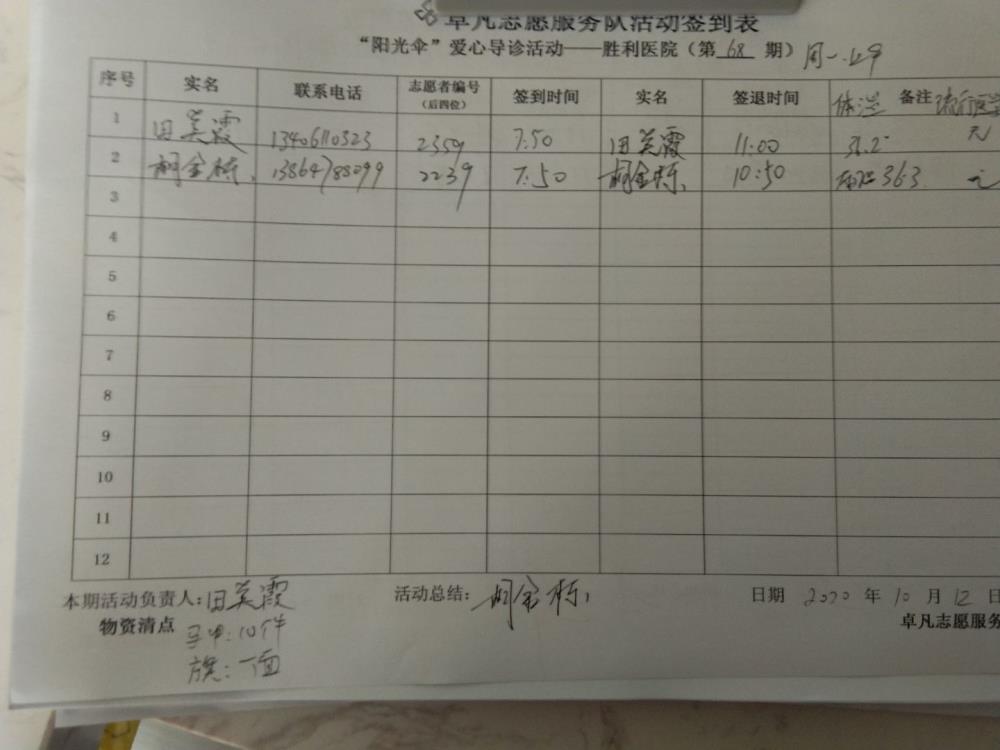 卓凡志愿服务队活动签到表
“阳光伞”爱心导诊活动——胜利医院（第 68 期）周一.上午
序号 实名 联系电话 志愿者编号（后四位） 签到时间 实名 签退时间 体温 备注 流行病学
1 田美霞 13406110323 2359 7:50 田美霞 11:00 36.2 无
2 胡金栋 13864788099 2239 7:50 胡金栋 10:50 体温363 无
3
4
5
6
7
8
9
10
11
12
本期活动负责人：田美霞 活动总结：胡金栋 日期 2020 年 10 月 12 日
物资清点 马甲：10件 卓凡志愿服务
旗：一面